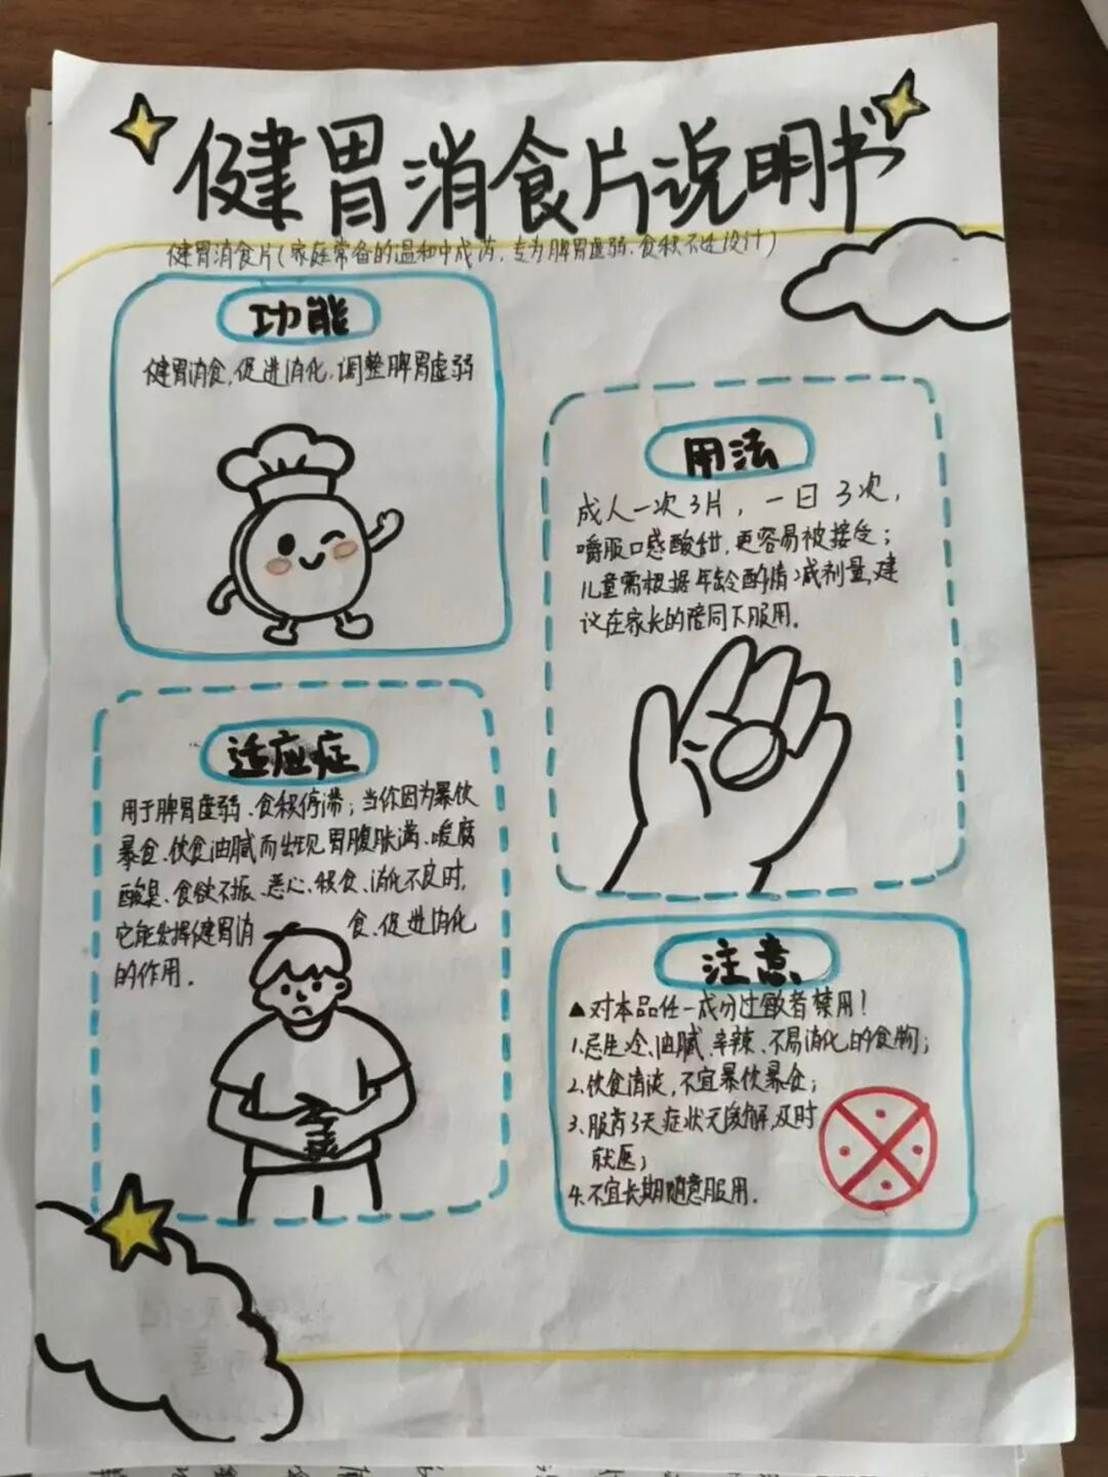 健胃消食片说明书
健胃消食片(家庭常备的温和中成药,专为脾胃虚弱、食积不适设计)
功能
健胃消食,促进消化,调整脾胃虚弱
用法
成人一次3片,一日3次,
嚼服口感酸甜,更容易被接受;
儿童需根据年龄酌情减剂量,建
议在家长的陪同下服用.
适应症
用于脾胃虚弱、食积停滞;当你因为暴饮
暴食、饮食油腻而出现胃腹胀满、嗳腐
酸臭、食欲不振、恶心、积食、消化不良时,
它能发挥健胃消食、促进消化
的作用.
注意
▲对本品任一成分过敏者禁用!
1、忌生冷、油腻、辛辣、不易消化的食物;
2、饮食清淡,不宜暴饮暴食;
3、服药3天症状无缓解,及时
就医;
4、不宜长期随意服用.